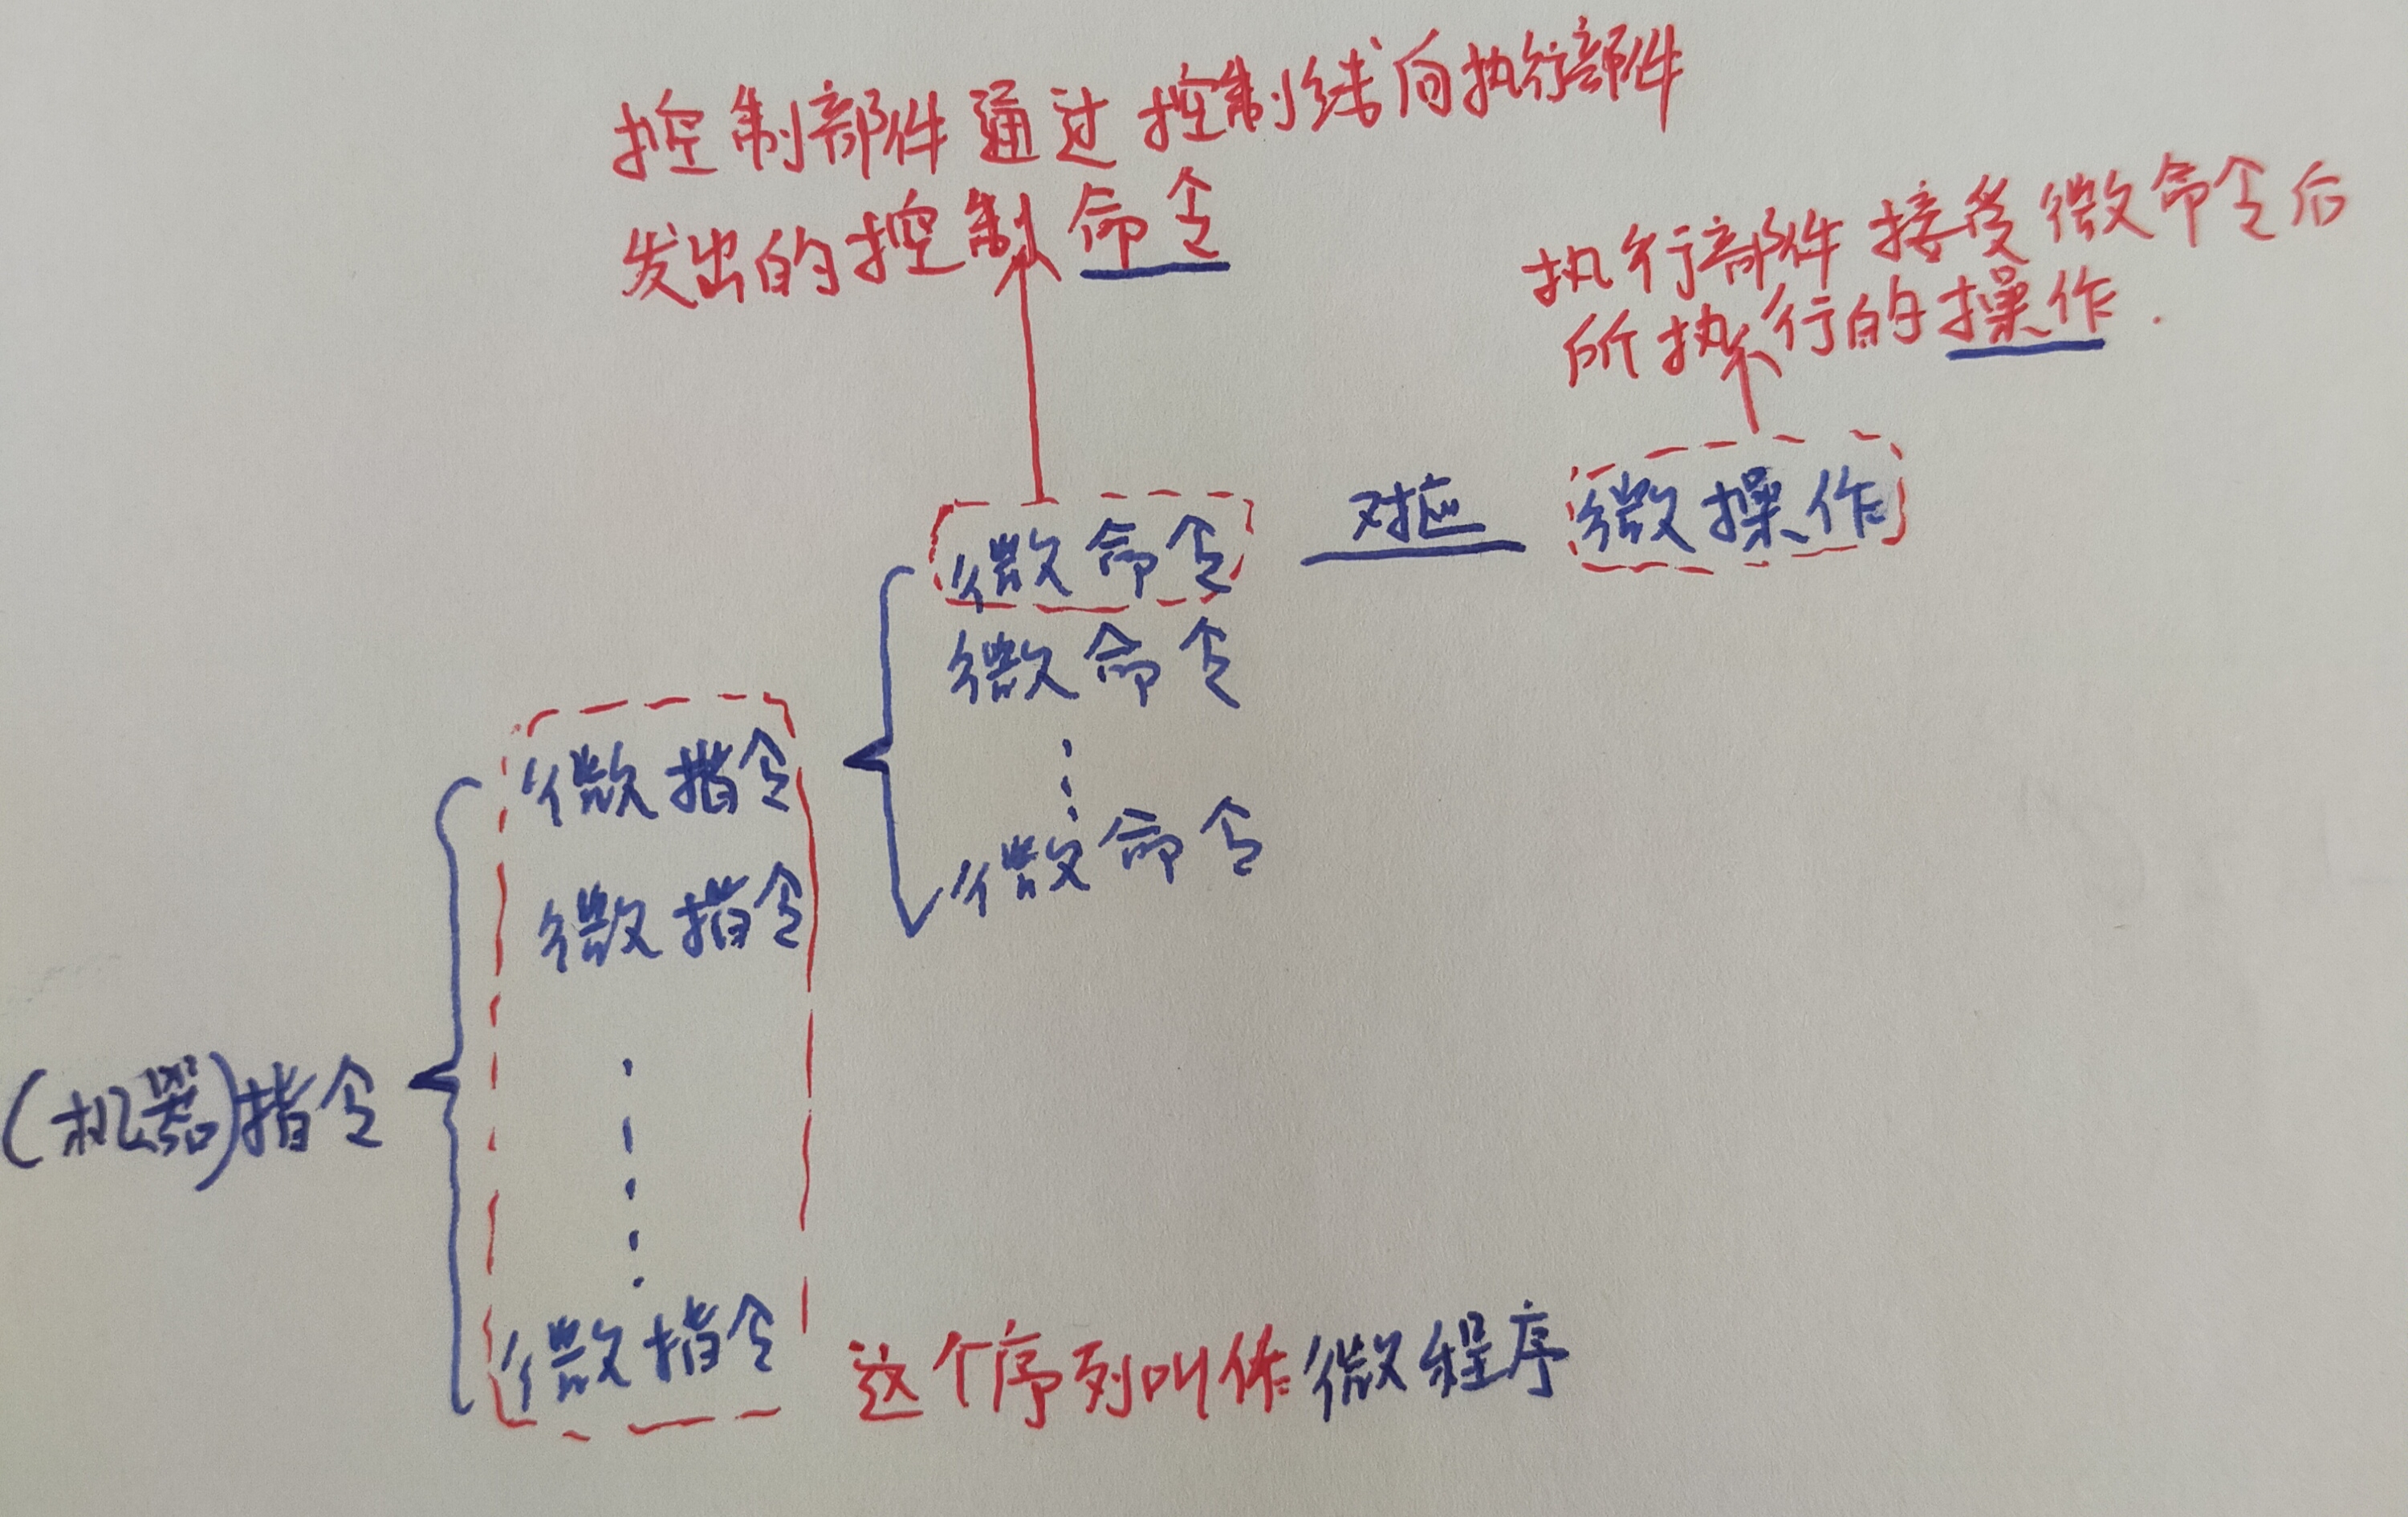 控制部件通过控制线向执行部件
发出的控制命令
执行部件接受微命令后
所执行的操作.
微命令 对应 微操作
微命令
微指令
微命令
微指令
(机器)指令
微指令 这个序列叫作微程序